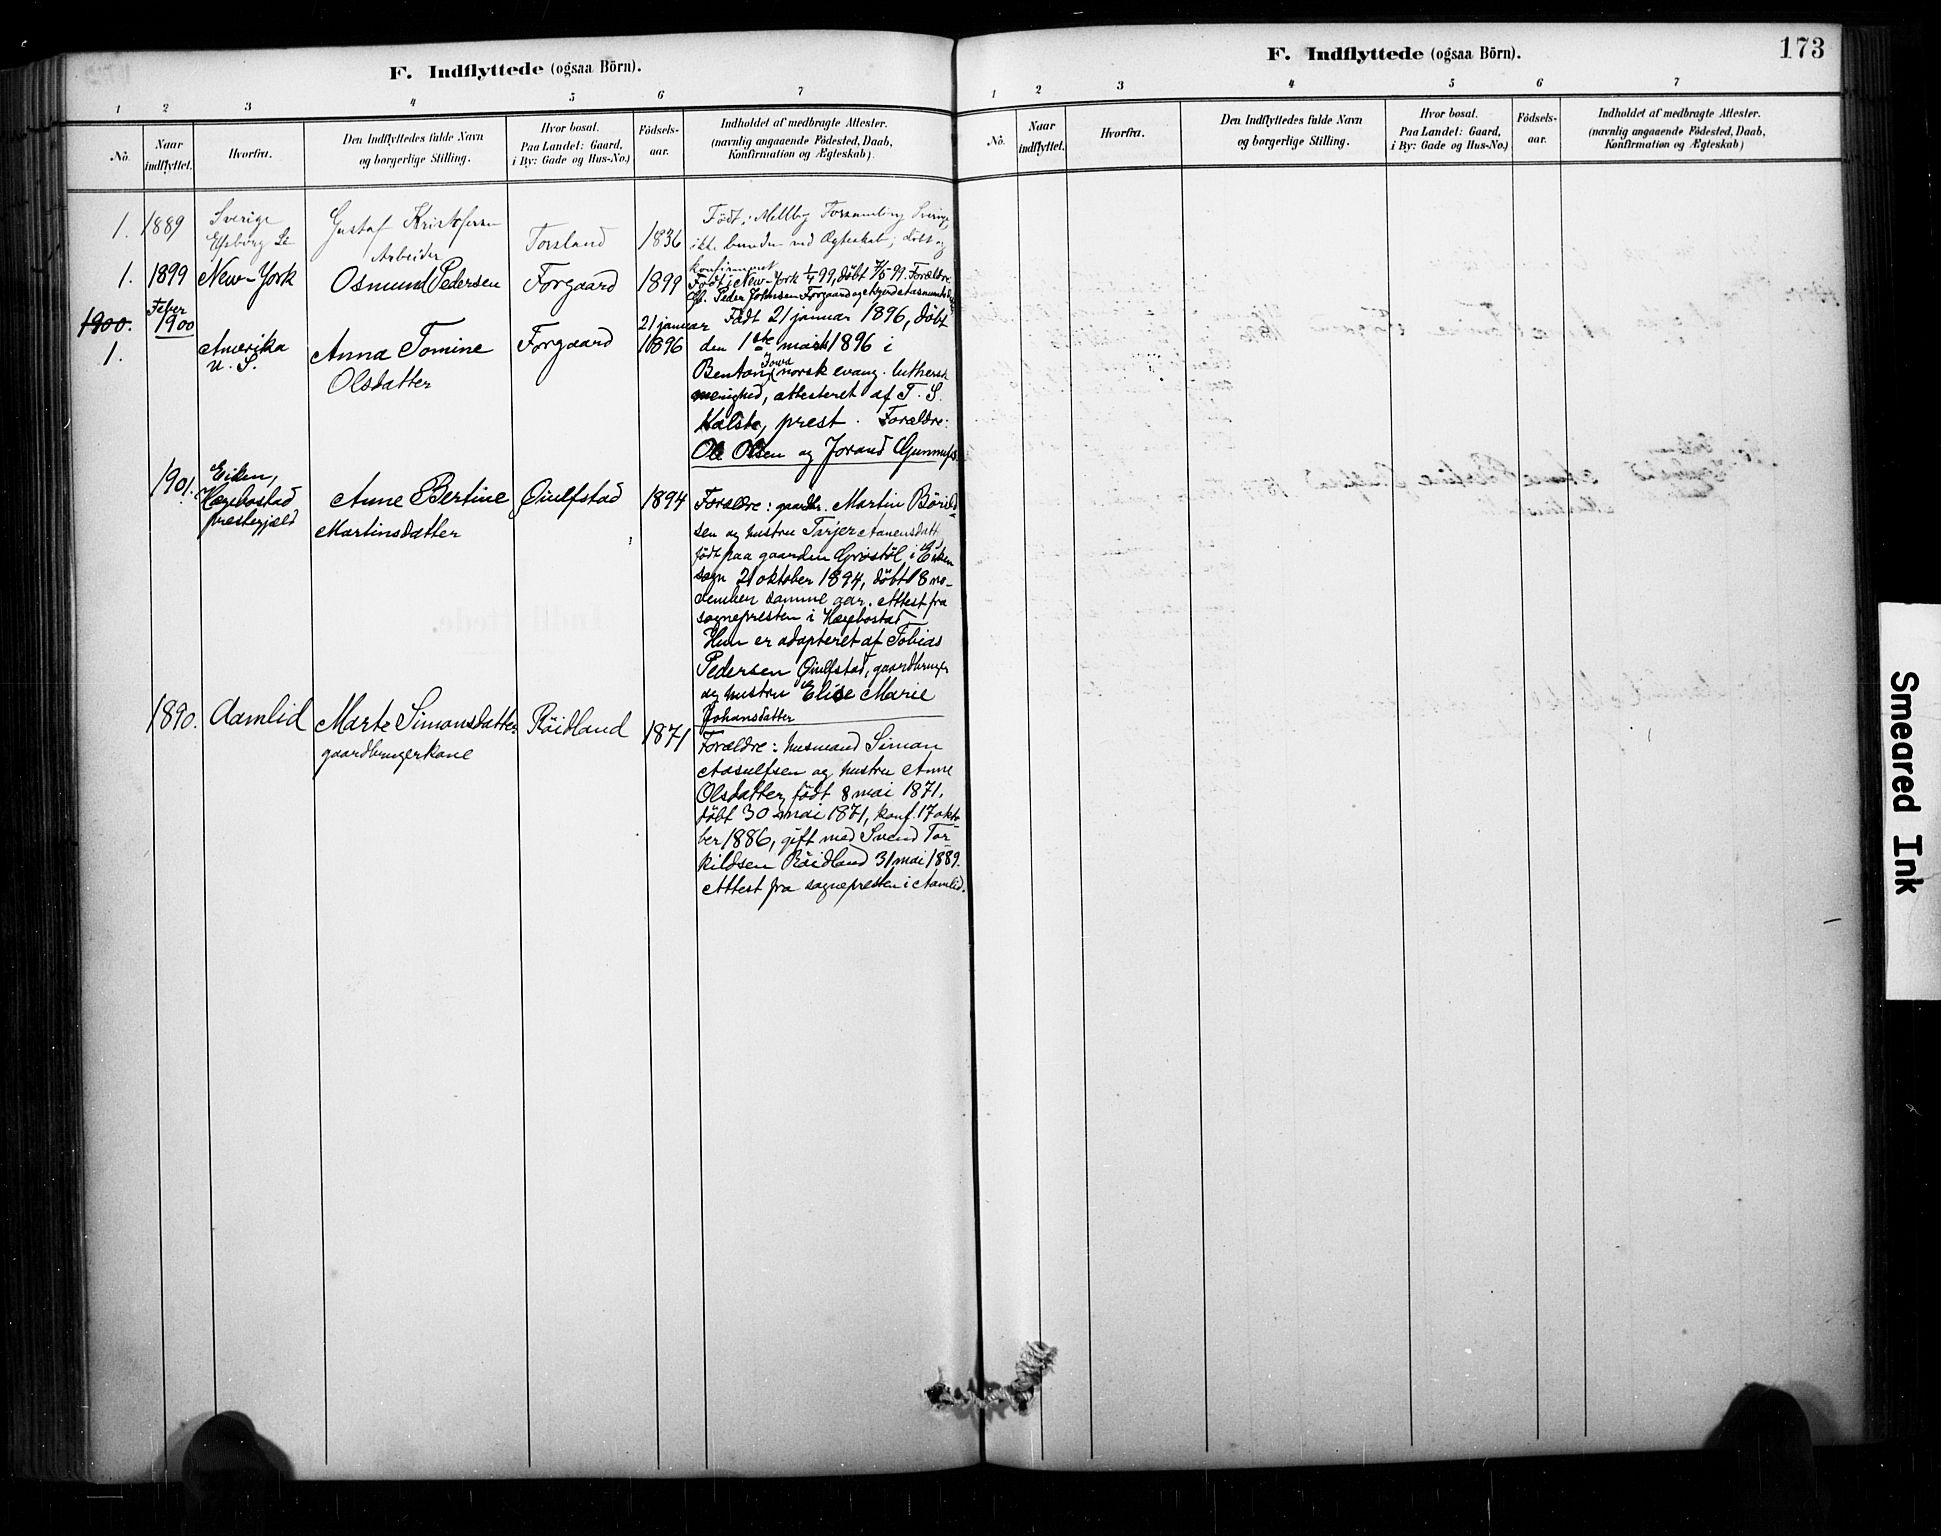 F. Indflyttede (ogsaa Börn).
1 2 3 4 5 6 7
No. Naar indflyttet. Hvorfra. Den Indflyttedes fulde Navn og borgerlige Stilling. Hvor bosat. Paa Landet: Gaard, i By: Gade og Hus-No.) Födsels-aar. Indholdet af medbragte Attester. (navnlig angaaende Födested, Daab, Konfirmation og Ægteskab)
1. 1889 Sverige Gustaf Kristofersen Torsland 1836 Født i Mellby Forsamling Sverige,
Elfsborg Arbeider ikke bunden ved Ægteskab, döbt og
konfirmeret
1. 1899 New-York Osmund Pedersen Forgaard 1899 Født i New-York 1/4 99, döbt 7/5-99. Forældre
Peder Johnsen Forgaard og
1900. Feber 1900 21 januar Født 21 januar 1896, döbt
1. Amerika Anna Tomine Forgaard 1896 den 1ste marts 1896 i
U. S. Olsdatter Benton, Iowa norsk evang. luthersk
menighed, attesteret af T. S.
Kolste, prest. Forældre:
Ole Olsen og Jorand Gunnufs.
1901. Eiken, Anne Bertine Øiulfstad 1894 Forældre: gaardbr. Martin Börild-
Hægebostad Martinsdatter sen og hustru Tarjer Aanensdatt.
prestegjeld födt paa gaarden Grostöl i Eiken
sogn 21 oktober 1894, döbt 18 no-
vember samme aar. Attest fra
sognepresten i Hægebostad.
Hun er adopteret af Tobias
Pedersen Øiulfstad, gaardbruger
og hustru Elise Marie
Johansdatter
1890. Aamlid Marte Simonsdatter Röidland 1871 Forældre: husmand Simon
gaardbrugerkone Aasulfsen og hustru Anne
Olsdatter, födt 8 mai 1871,
döbt 30 mai 1871, konf. 17 okto-
ber 1886, gift med Svend Tor-
kildsen Röidland 31 mai 1889.
Attest fra sognepresten i Aamlid.
F. Indflyttede (ogsaa Börn).
173
1 2 3 4 5 6 7
No. Naar indflyttet. Hvorfra. Den Indflyttedes fulde Navn og borgerlige Stilling. Hvor bosat. Paa Landet: Gaard, i By: Gade og Hus-No.) Födsels-aar. Indholdet af medbragte Attester. (navnlig angaaende Födested, Daab, Konfirmation og Ægteskab)
Smeared Ink